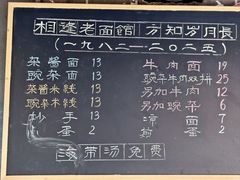 相逢老面馆 方知岁月長
(一九八二—二〇二五)
菜酱面 13
豌杂面 13
菜酱米线 13
豌杂米线 13
抄手 13
卤蛋 2
牛肉面 19
豌杂牛肉双拼 25
另加牛肉 12
另加豌杂 6
凉面 9
煎蛋 2
海带汤免费